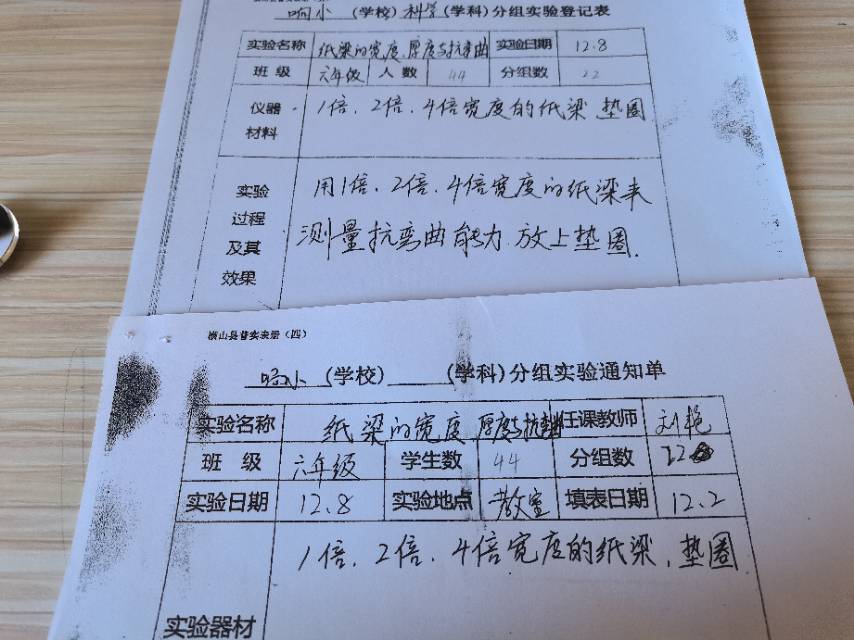 响小 (学校) 科学 (学科) 分组实验登记表
实验名称 纸梁的宽度、厚度与抗弯曲 实验日期 12.8
班 级 六年级 人 数 44 分组数 22
仪器材料 1倍、2倍、4倍宽度的纸梁 垫圈
实验过程及其效果 用1倍、2倍、4倍宽度的纸梁来
测量抗弯曲能力 放上垫圈.
横山县普实表册（四）
响小 (学校) (学科) 分组实验通知单
实验名称 纸梁的宽度、厚度与抗弯曲 任课教师 刘艳
班 级 六年级 学生数 44 分组数 22
实验日期 12.8 实验地点 教室 填表日期 12.2
实验器材 1倍、2倍、4倍宽度的纸梁、垫圈